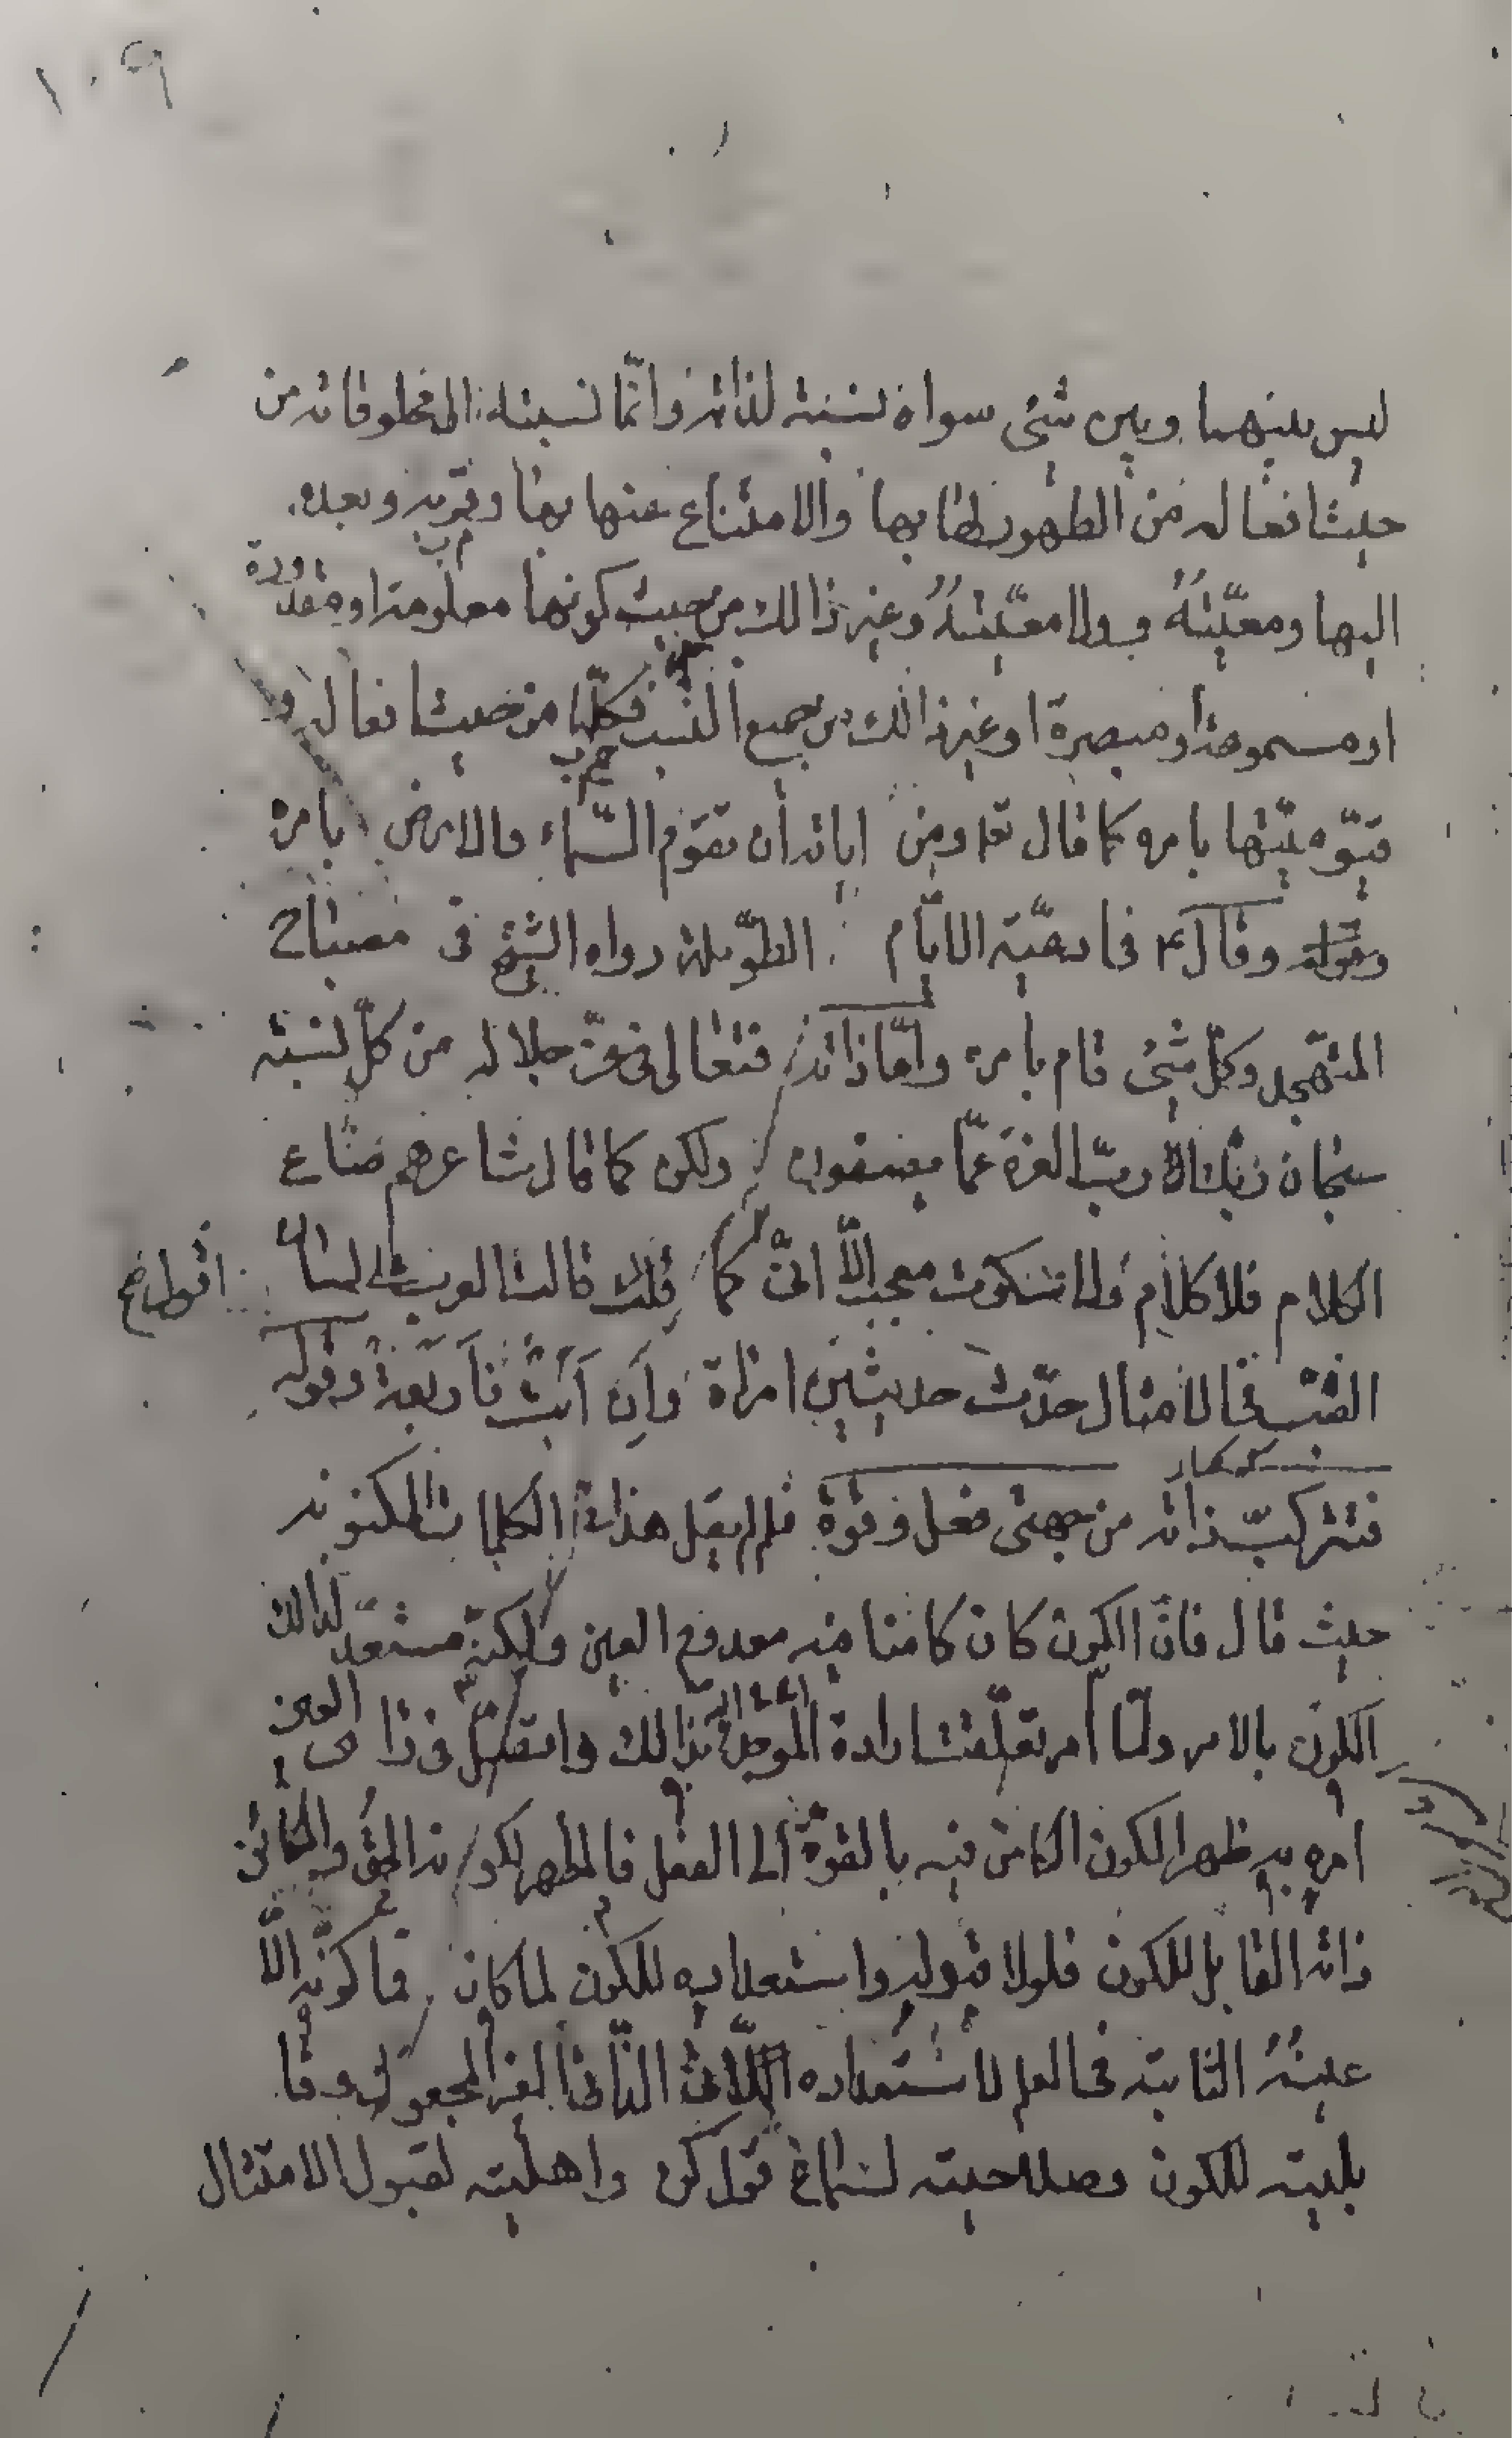 ١٠٩
ليس بينهما وبين شئ سواه نسبته لذاته وانّما نسبته الى مخلوقاته من
حيث افعاله من الظهور لها بها والامتناع عنها بها وقربه وبعده
اليها ومعيّته ولا معيّته وغير ذالك من حيث كونها معلومة او مقدورة
او مسموعة او مبصرة او غير ذالك من جميع النسب فكلّها من حيث افعاله و
قيّوميّتها بامره كما قال تعا ومن اياته أن تقوم السّماء والارض بامره
وقال ع فى ادعية الايّام الطّويلة رواه الشيخ فى مصباح
المتهجد وكلّ شئ قام بامره وامّا ذاته فتعالى فى عزّ جلاله من كلّ نسبته
سبحان ربّك ربّ العزة عمّا يصفون ولكن كما قال شاعرهم ضاع
الكلام فلا كلام ولا سكوت معجب الّا انّى كما قلت قالت العرب
اقول صح
فى الامثال حدّث حديثين امرأة وان أبت فأربعة وقوله
فتتركب ذاته من جهتى فعل وقوّة فلم يقل هذا فى الكلمات المكنونه
حيث قال فانّ الكون كان كامنا فيه معدوم العين ولكنّه مستعدّ لذالك
الكون بالامر ولمّا أمر تعلّقت ارادة الموجد بذالك واتصل فى رأى العين
امره به ظهر الكون الكامن فيه بالقوة الى الفعل فالمظهر لكونه الحقّ والكائن
ذاته القابل للكون فلولا قبوله واستعداده للكون لما كان فما كونه الّا
عينه الثابتة فى العلم لاستعداده الذّاتى الغير المجعول وقا
بليته للكون وصلاحيته لسماع قول كن واهليته لقبول الامتثال